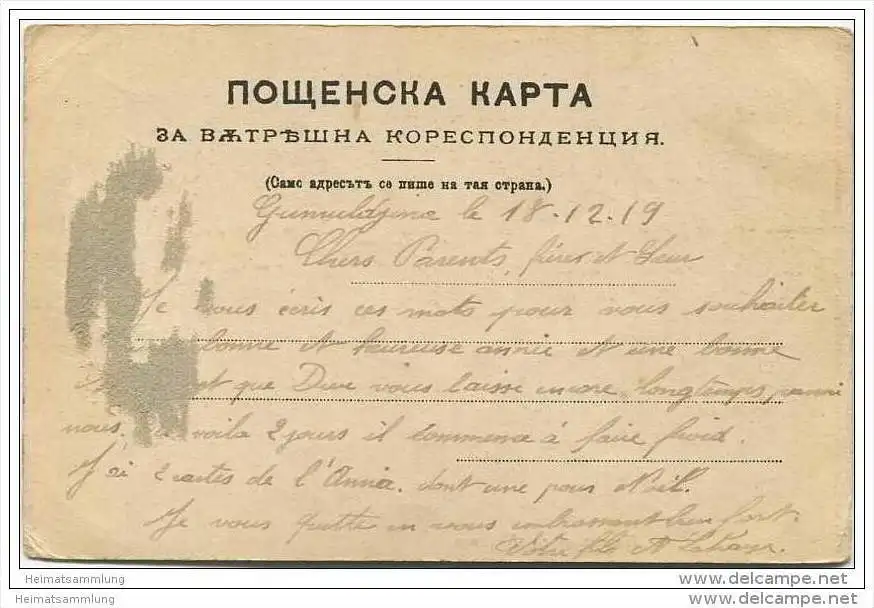 ПОЩЕНСКА КАРТА
ЗА ВѪТРѢШНА КОРЕСПОНДЕНЦИЯ.
(Само адресътъ се пише на тая страна.)
Gumuldjine le 18.12.19
Chers Parents, frères et Seur
Je vous écris ces mots pour vous souhaiter
bonne et heureuse année et une bonne
que Dieu vous laisse encore longtemps parmi
nous. voila 2 jours il commence à faire froid.
J'ai 2 cartes de l'Année. dont une pour Noël.
Je vous quitte en vous embrassant bien fort.
Votre fils A
Heimatsammlung
Heimatsammlung
www.delcampe.net
www.delcampe.net